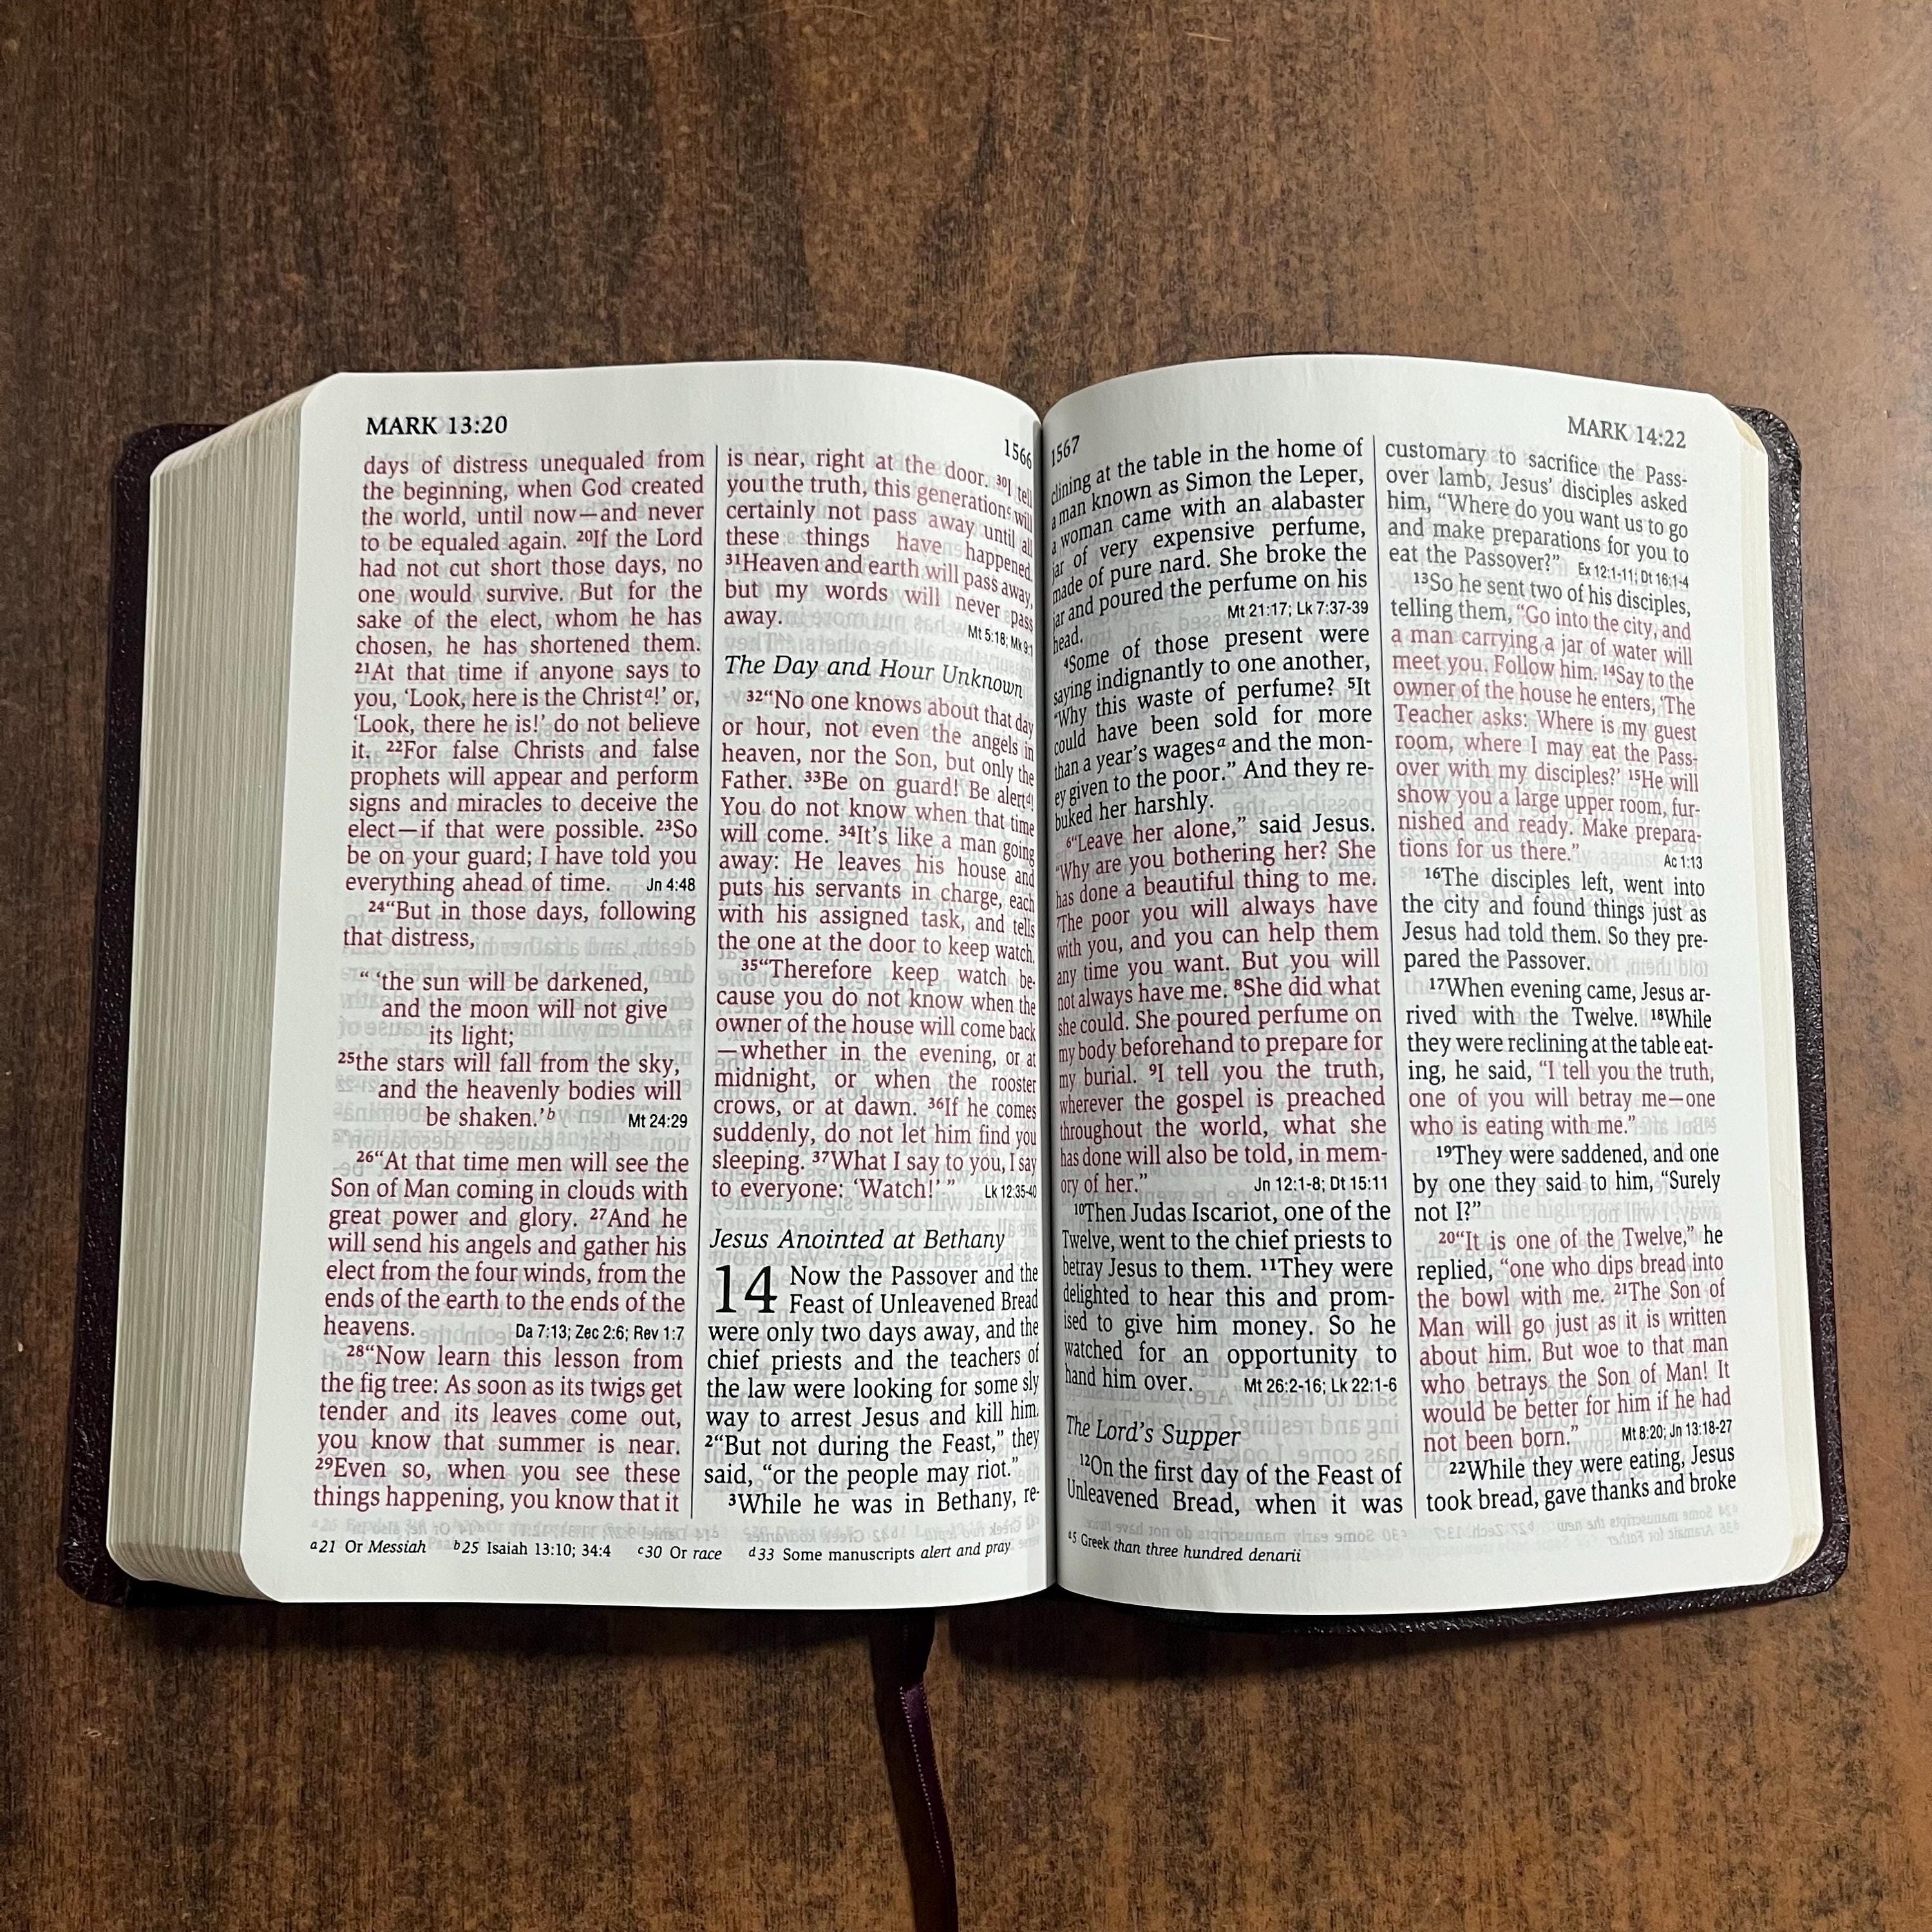 MARK 13:20
1566
days of distress unequaled from
the beginning, when God created
the world, until now—and never
to be equaled again. 20If the Lord
had not cut short those days, no
one would survive. But for the
sake of the elect, whom he has
chosen, he has shortened them.
21At that time if anyone says to
you, ‘Look, here is the Christa!’ or,
‘Look, there he is!’ do not believe
it. 22For false Christs and false
prophets will appear and perform
signs and miracles to deceive the
elect—if that were possible. 23So
be on your guard; I have told you
everything ahead of time. Jn 4:48
24“But in those days, following
that distress,
“ ‘the sun will be darkened,
and the moon will not give
its light;
25the stars will fall from the sky,
and the heavenly bodies will
be shaken.’b Mt 24:29
26“At that time men will see the
Son of Man coming in clouds with
great power and glory. 27And he
will send his angels and gather his
elect from the four winds, from the
ends of the earth to the ends of the
heavens. Da 7:13; Zec 2:6; Rev 1:7
28“Now learn this lesson from
the fig tree: As soon as its twigs get
tender and its leaves come out,
you know that summer is near.
29Even so, when you see these
things happening, you know that it
is near, right at the door. 30I tell
you the truth, this generationc will
certainly not pass away until all
these things have happened.
31Heaven and earth will pass away,
but my words will never pass
away. Mt 5:18; Mk 9:1
The Day and Hour Unknown
32“No one knows about that day
or hour, not even the angels in
heaven, nor the Son, but only the
Father. 33Be on guard! Be alertd!
You do not know when that time
will come. 34It’s like a man going
away: He leaves his house and
puts his servants in charge, each
with his assigned task, and tells
the one at the door to keep watch.
35“Therefore keep watch be-
cause you do not know when the
owner of the house will come back
—whether in the evening, or at
midnight, or when the rooster
crows, or at dawn. 36If he comes
suddenly, do not let him find you
sleeping. 37What I say to you, I say
to everyone: ‘Watch!’ ” Lk 12:35-40
Jesus Anointed at Bethany
14 Now the Passover and the
Feast of Unleavened Bread
were only two days away, and the
chief priests and the teachers of
the law were looking for some sly
way to arrest Jesus and kill him.
2“But not during the Feast,” they
said, “or the people may riot.”
3While he was in Bethany, re-
a21 Or Messiah b25 Isaiah 13:10; 34:4 c30 Or race d33 Some manuscripts alert and pray
1567
MARK 14:22
clining at the table in the home of
a man known as Simon the Leper,
a woman came with an alabaster
jar of very expensive perfume,
made of pure nard. She broke the
jar and poured the perfume on his
head. Mt 21:17; Lk 7:37-39
4Some of those present were
saying indignantly to one another,
“Why this waste of perfume? 5It
could have been sold for more
than a year’s wagesa and the mon-
ey given to the poor.” And they re-
buked her harshly.
6“Leave her alone,” said Jesus.
“Why are you bothering her? She
has done a beautiful thing to me.
7The poor you will always have
with you, and you can help them
any time you want. But you will
not always have me. 8She did what
she could. She poured perfume on
my body beforehand to prepare for
my burial. 9I tell you the truth,
wherever the gospel is preached
throughout the world, what she
has done will also be told, in mem-
ory of her.” Jn 12:1-8; Dt 15:11
10Then Judas Iscariot, one of the
Twelve, went to the chief priests to
betray Jesus to them. 11They were
delighted to hear this and prom-
ised to give him money. So he
watched for an opportunity to
hand him over. Mt 26:2-16; Lk 22:1-6
The Lord’s Supper
12On the first day of the Feast of
Unleavened Bread, when it was
customary to sacrifice the Pass-
over lamb, Jesus’ disciples asked
him, “Where do you want us to go
and make preparations for you to
eat the Passover?” Ex 12:1-11; Dt 16:1-4
13So he sent two of his disciples,
telling them, “Go into the city, and
a man carrying a jar of water will
meet you. Follow him. 14Say to the
owner of the house he enters, ‘The
Teacher asks: Where is my guest
room, where I may eat the Pass-
over with my disciples?’ 15He will
show you a large upper room, fur-
nished and ready. Make prepara-
tions for us there.” Ac 1:13
16The disciples left, went into
the city and found things just as
Jesus had told them. So they pre-
pared the Passover.
17When evening came, Jesus ar-
rived with the Twelve. 18While
they were reclining at the table eat-
ing, he said, “I tell you the truth,
one of you will betray me—one
who is eating with me.”
19They were saddened, and one
by one they said to him, “Surely
not I?”
20“It is one of the Twelve,” he
replied, “one who dips bread into
the bowl with me. 21The Son of
Man will go just as it is written
about him. But woe to that man
who betrays the Son of Man! It
would be better for him if he had
not been born.” Mt 8:20; Jn 13:18-27
22While they were eating, Jesus
took bread, gave thanks and broke
a5 Greek than three hundred denarii